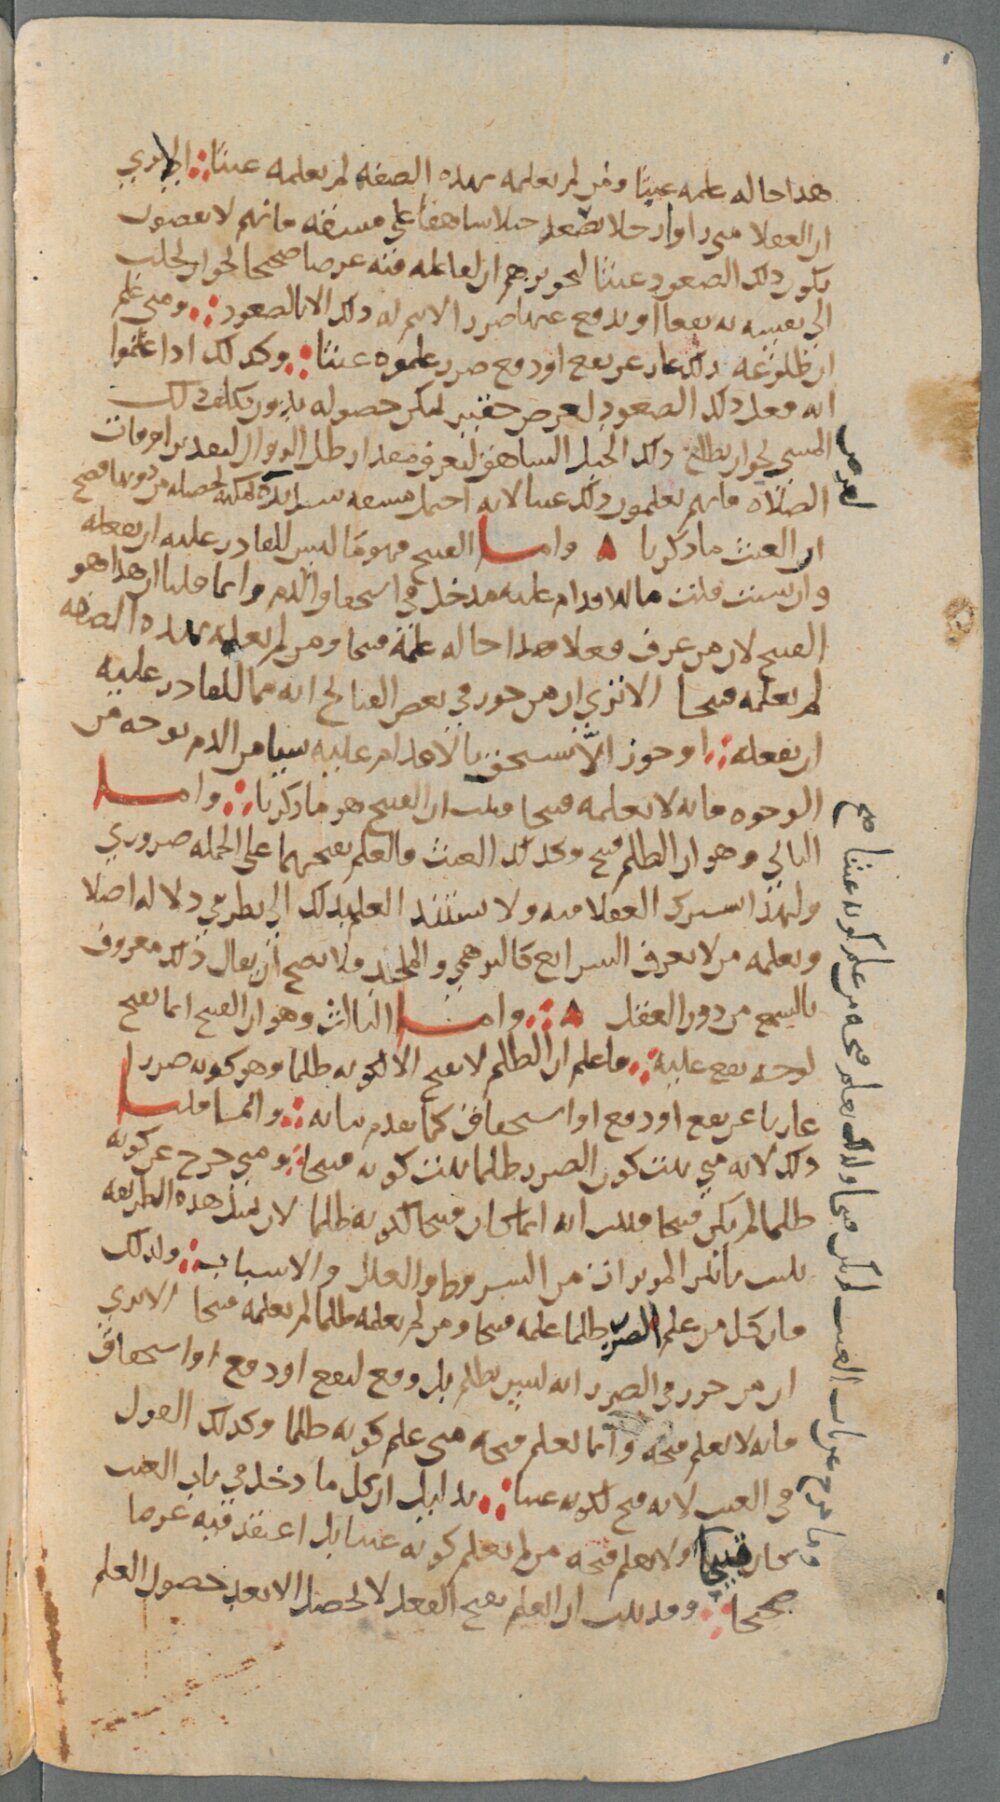 هذا حاله علمه عبثا ومن لم يعلمه بهذه الصفه لم يعلمه عبثا الا تري
ان العقلا متي راوا رجلا يصعد جبلا شاهقا علي مشقه فانهم لا يقضون
بكون ذلك الصعود عبثا لتجويزهم ان لفاعله فيه غرضا صحيحا نحو ان يجلب
الي نفسه به نفعا او يدفع عنها ضررا لا يتم له ذلك الا بالصعود ومتي علم
ان طلوعه ذلك عار عن نفع او دفع ضرر علموه عبثا وكذلك اذا علموا
انه فعل ذلك الصعود لغرض حقير يمكن حصوله بدون تكلف تلك
المشي نحو ان يطالع ذلك الجبل الشاهق ليعرف مقدار ظل الزوال ليعد به اوقات
لغرض
الصلاه فانهم يعلمون ذلك عبثا لانه احتمل مشقه يمكنه تحصيله من دونها فصح
ان العبث ما ذكرنا واما القبيح فهو ما ليس للقادر عليه ان يفعله
وان شئت قلت ما للاقدام عليه مدخل في استحقاق الذم وانما قلنا ان هذا هو
القبيح لان من عرف فعلا هذا حاله علمه قبيحا ومن لم يعلمه بهذه الصفه
لم يعلمه قبيحا الا تري ان من جوز في بعض القبائح انه مما للقادر عليه
ان يفعله او جوز الا يستحق بالاقدام عليه شيا من الذم بوجه من
الوجوه فانه لا يعلمه قبيحا فثبت ان القبيح هو ما ذكرنا واما
الثاني وهو ان الظلم قبيح وكذلك العبث فالعلم بقبحهما علي الجمله ضروري
ولهذا اشترك العقلا فيه ولا يستند العلم بذلك الي نظر في دلاله اصلا
ويعلمه من لا يعرف الشرايع كالبرهمي والملحد فلا يصح ان يقال ذلك معروف
بالسمع من دون العقل واما الثالث وهو ان القبيح انما يقبح
لوجه يقع عليه فاعلم ان الظلم لا يقبح الا لكونه ظلما وهو كونه ضررا
عاريا عن نفع او دفع او استحقاق كما تقدم بيانه وانما قلنا
ذلك لانه متي ثبت كون الضرر ظلما ثبت كونه قبيحا ومتي خرج عن كونه
ظلما لم يكن قبيحا فثبت انه انما كان قبيحا لكونه ظلما لان بمثل هذه الطريقه
يثبت تاثير الموثرات من الشروط والعلل والاسباب ولذلك
فان كل من علم الضرر ظلما علمه قبيحا ومن لم يعلمه ظلما لم يعلمه قبيحا الا تري
ان من جوز في الضرر انه ليس بظلم بل وقع لنفع او دفع او استحقاق
فانه لا يعلم قبحه وانما يعلم قبحه متي علم كونه ظلما وكذلك القول
في العبث لانه قبح لكونه عبثا بدليل ان كل ما دخل في باب العبث
كان قبيحا ولا يعلم قبحه من لم يعلم كونه عبثا بل اعتقد فيه غرضا
صحيحا وقد ثبت ان العلم بقبح الفعل لا يحصل الا بعد حصول العلم
وما خرج عن باب العبث لم يكن قبيحا ولذلك يعلم قبحه من علم كونه عبثا صح